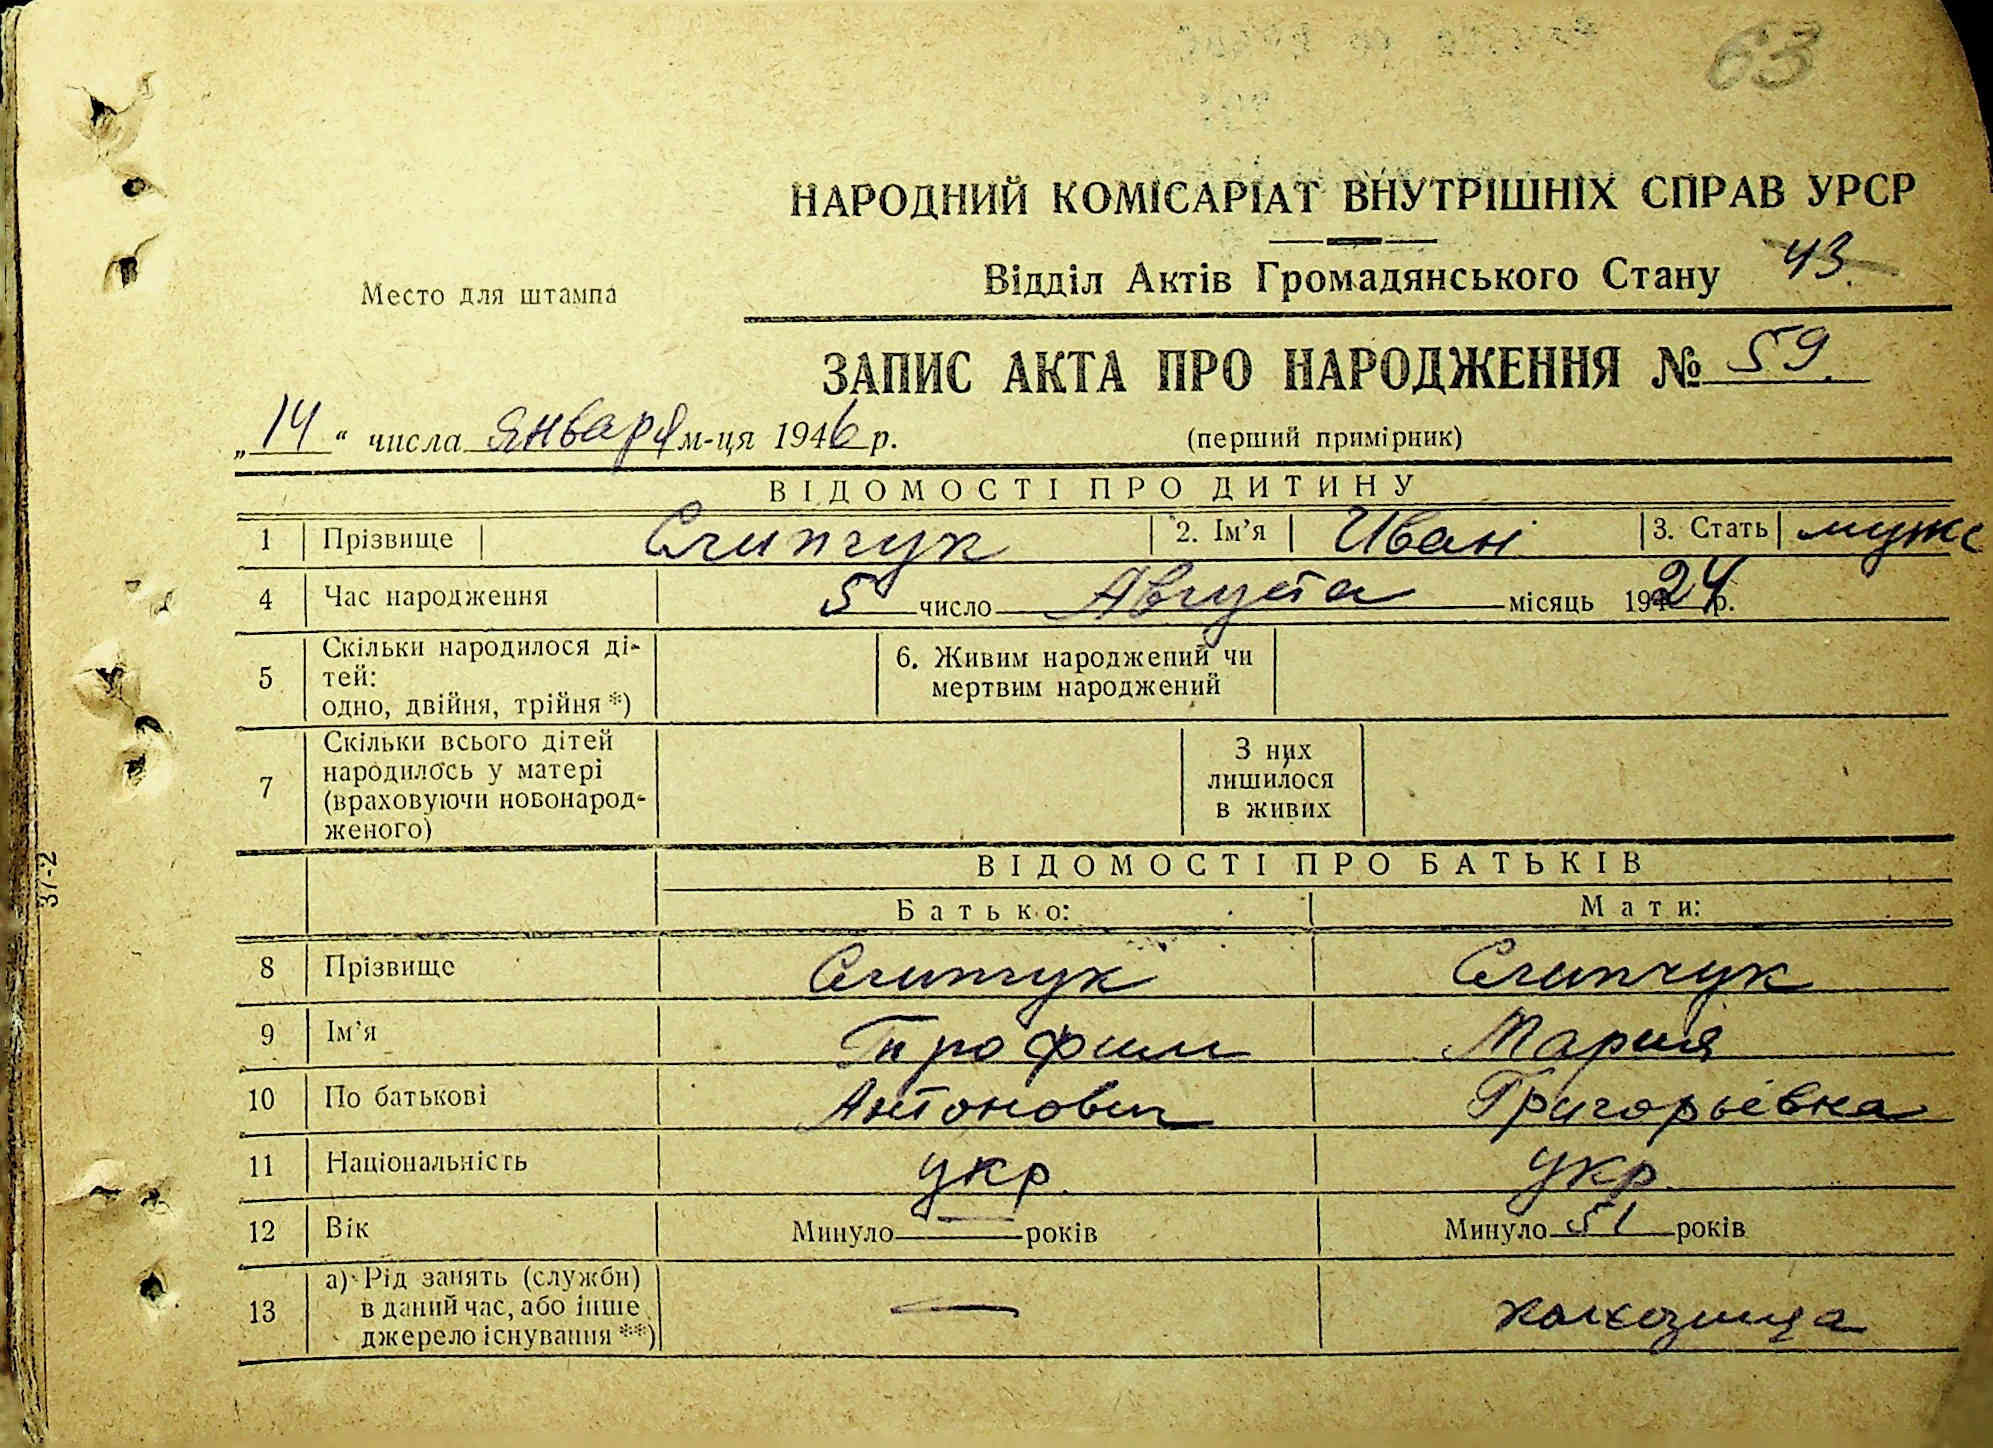 63
НАРОДНИЙ КОМІСАРІАТ ВНУТРІШНІХ СПРАВ УРСР
Відділ Актів Громадянського Стану 43.
Место для штампа
ЗАПИС АКТА ПРО НАРОДЖЕННЯ № 59.
„14“ числа января м-ця 1946 р. (перший примірник)
ВІДОМОСТІ ПРО ДИТИНУ
1 Прізвище Слипчук 2. Ім’я Иван 3. Стать муж
4 Час народження 5 число Августа місяць 1924 р.
5 Скільки народилося ді-
тей:
одно, двійня, трійня *)
6. Живим народжений чи
мертвим народжений
7 Скільки всього дітей
народилось у матері
(враховуючи новонарод-
женого)
З них
лишилося
в живих
ВІДОМОСТІ ПРО БАТЬКІВ
Батько: Мати:
8 Прізвище Слипчук Слипчук
9 Ім’я Трофим Мария
10 По батькові Антонович Григорьевна
11 Національність укр. укр.
12 Вік Минуло — років Минуло 51 років
13 а) Рід занять (служби)
в даний час, або інше
джерело існування **)
— колхозница
37-2